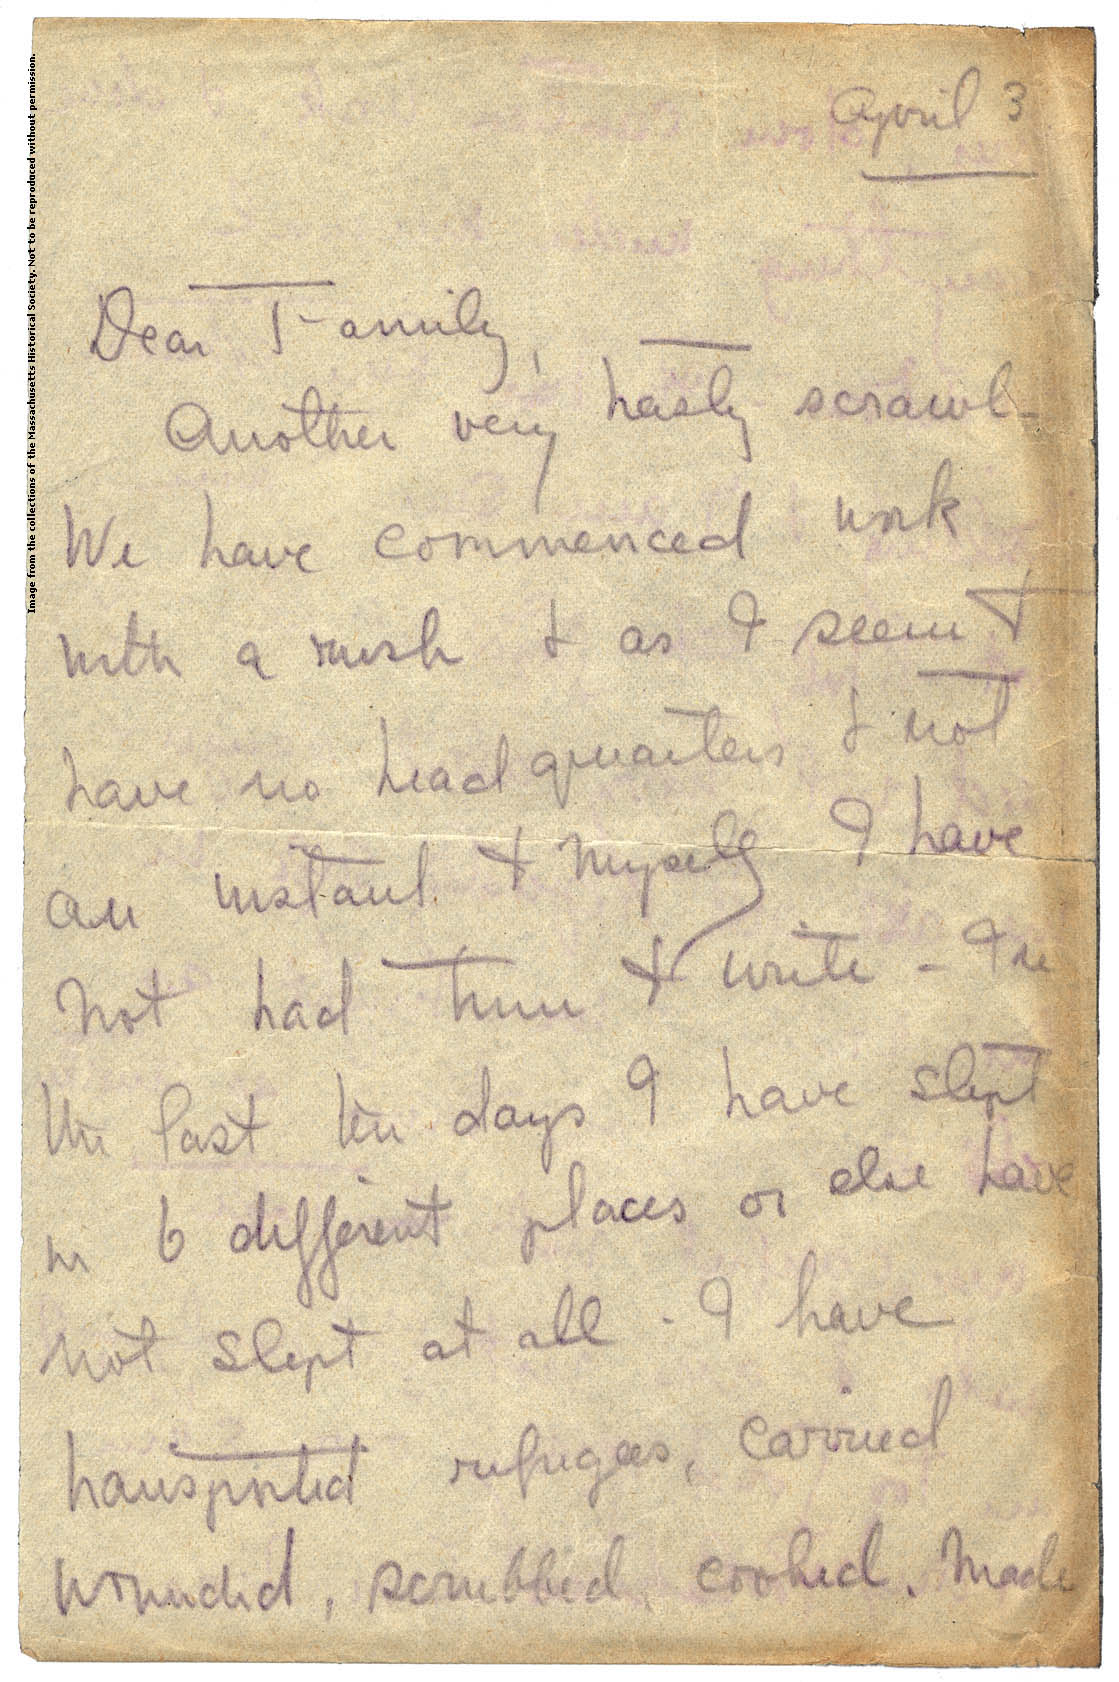 April 3
Dear Family,
Another very hasty scrawl -
We have commenced work
with a rush & as I seem to
have no headquarters & not
an instant to myself I have
not had time to write - In
the last ten days I have slept
in 6 different places or else have
not slept at all - I have
transported refugees, carried
wounded, scrubbed, cooked, made
Image from the collections of the Massachusetts Historical Society. Not to be reproduced without permission.